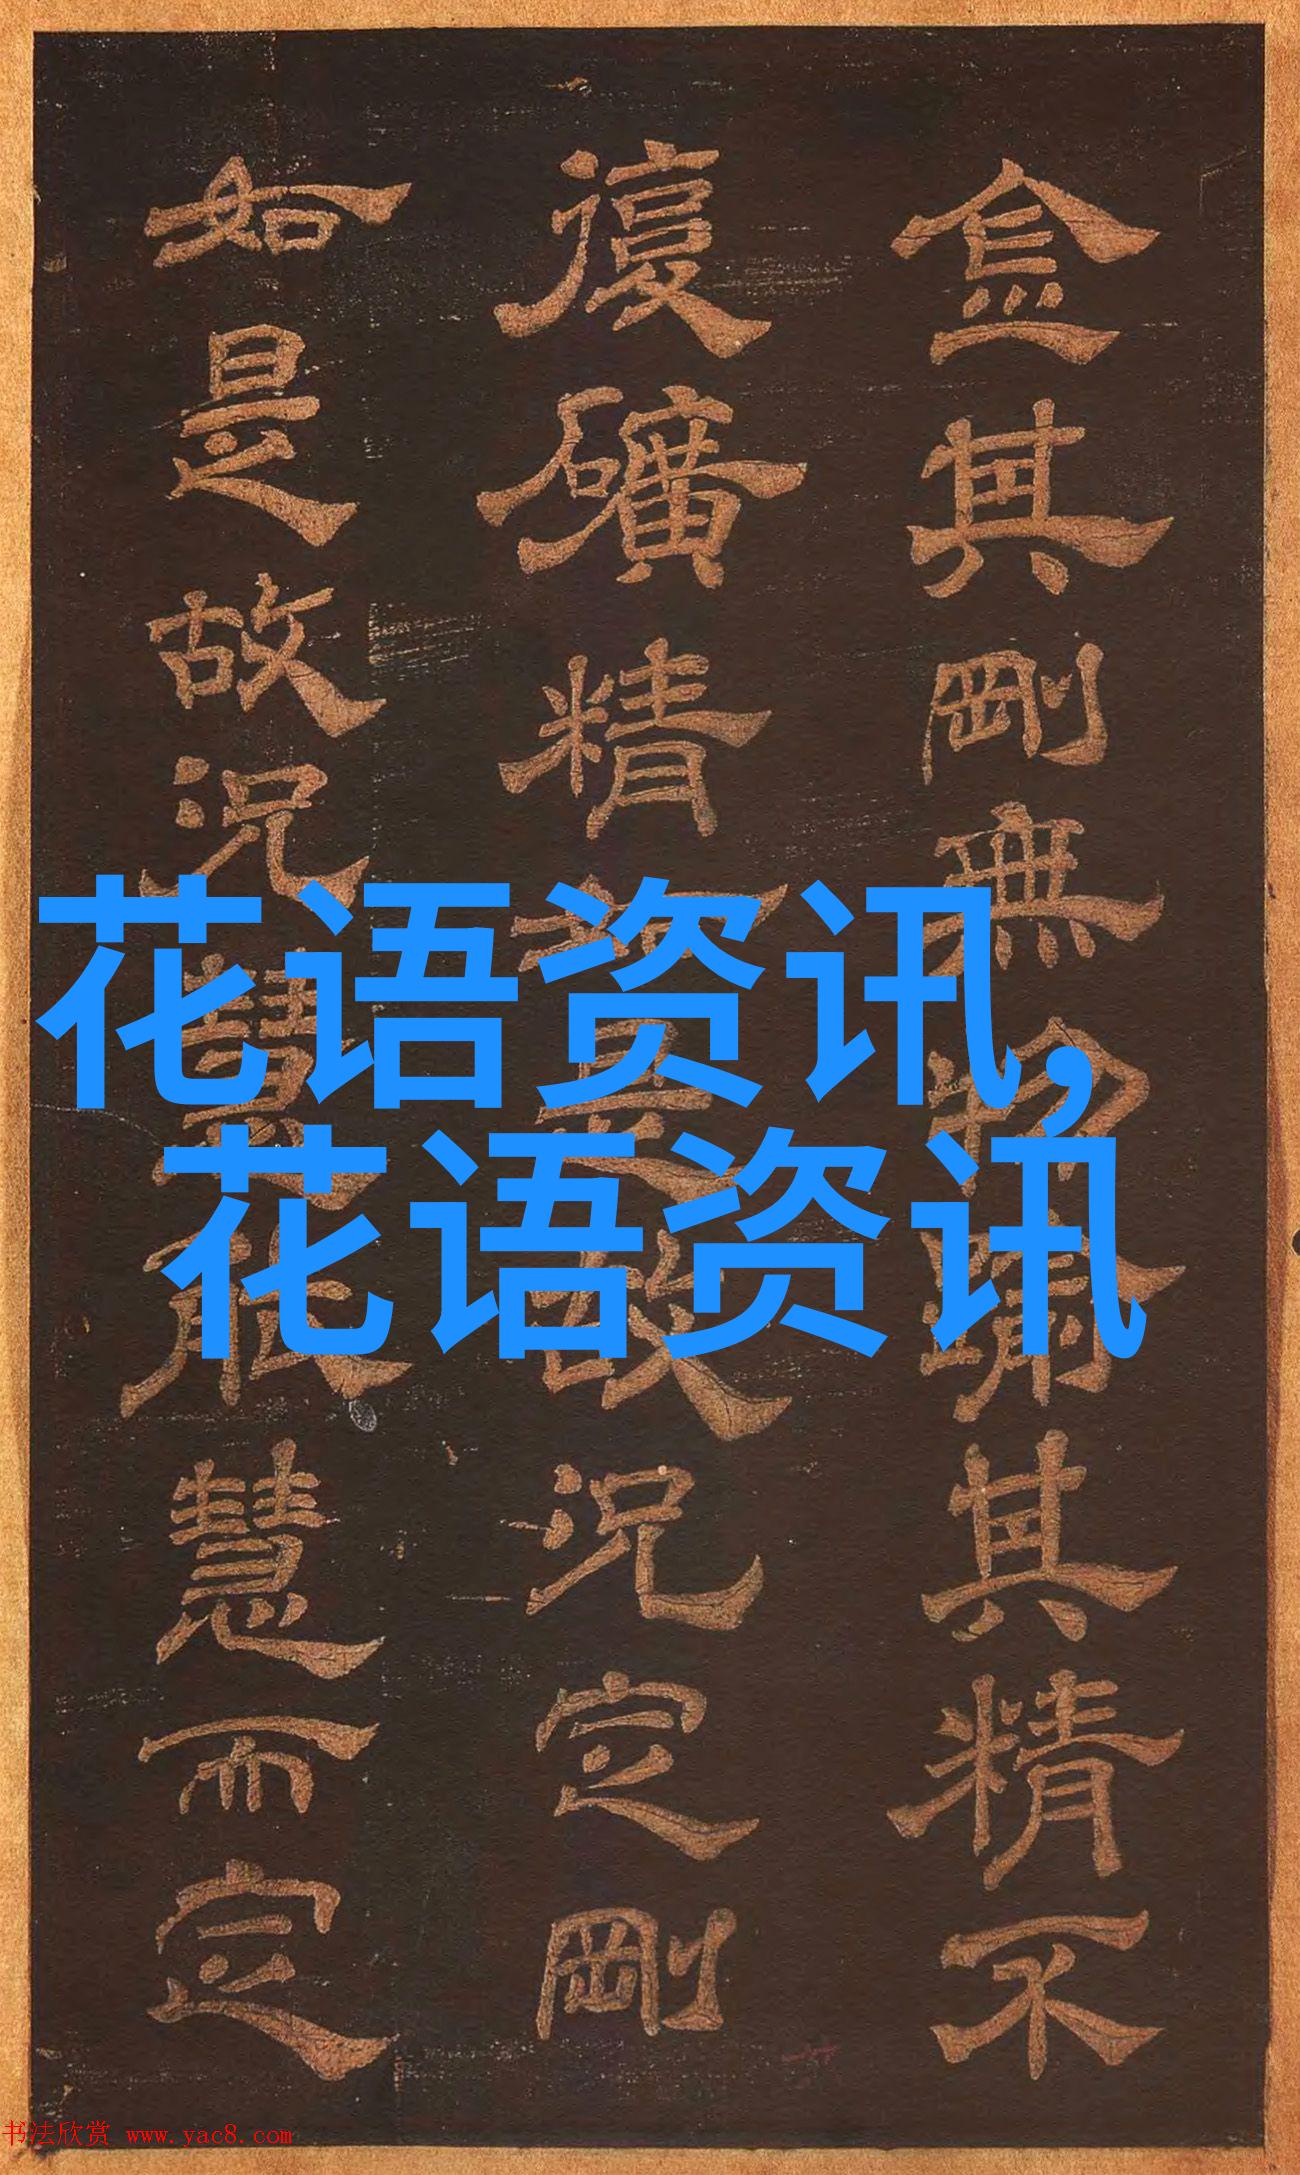 金其剛無物喻其精不
復礦精如是故況定剛
如是故況慧能慧而定
花语资讯,
花语资讯
书法欣赏 www.yac8.com